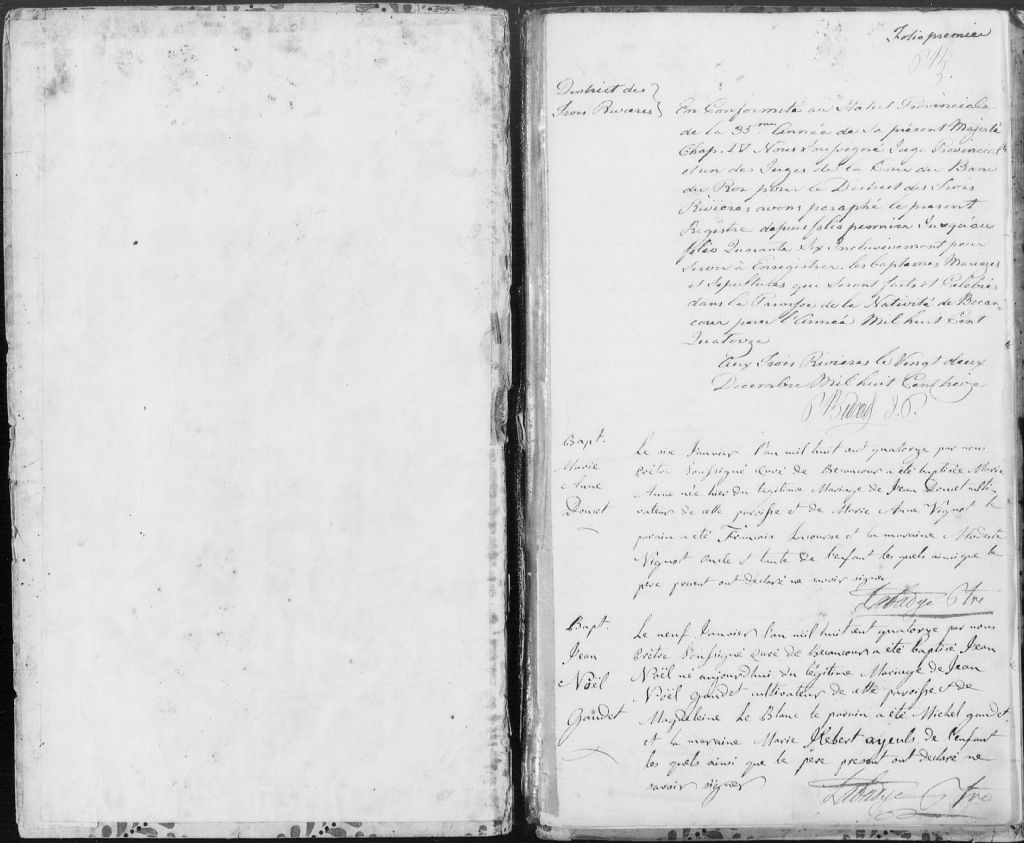 Folio premier
PB.
District des
Trois Rivieres
En Conformité au Statut Provinciale
de la 35me Année de Sa présent Majesté
Chap. IV Nous Soussigné Juge Provincial
et un des Juges de la Cour du Banc
du Roi pour le District des Trois
Rivieres avons paraphé le present
Régistre depuis folio premier Jusqu'au
folio Quarante Six Inclusivement pour
Servir à Enregistrer les baptemes Mariages
et Sepultures qui Seront faits et Célébrés
dans la Paroisse de la Nativité de Becan=
cour pour l'Année Mil huit Cent
Quatorze
Aux Trois Rivieres le Vingt deux
Decembre Mil huit Cent treize
P Bedard J. P.
Bapt.
Marie
Anne
Doucet
Le six Janvier l'an mil huit cent quatorze par nous
Prêtre Soussigné Curé de Becancour a été baptisée Marie
Anne née hier du legitime Mariage de Jean Doucet culti-
vateur de cette paroisse et de Marie Anne Vignot le
parain a été François Lacourse et la maraine Modeste
Vignot oncle et tante de l'enfant les quels ainsi que le
pere present ont déclaré ne savoir signer
Labadye Ptre
Bapt.
Jean
Noël
Gaudet
Le neuf Janvier l'an mil huit cent quatorze par nous
Prêtre Soussigné Curé de becancour a été baptisé Jean
Noël né aujourdhui du légitime Mariage de Jean
Noël gaudet cultivateur de cette paroisse et de
Magdeleine Le Blanc le parain a été Michel gaudet
et la marraine Marie Hebert ayeuls de l'enfant
les quels ainsi que le père present ont déclaré ne
savoir signer
Labadye Ptre